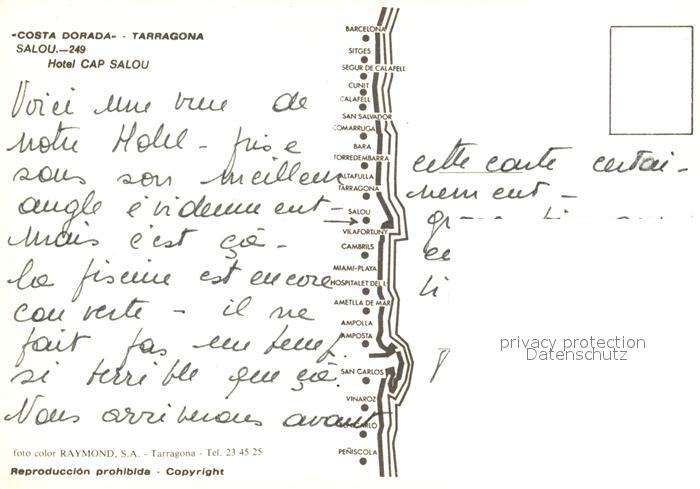 «COSTA DORADA» - TARRAGONA
SALOU.—249
Hotel CAP SALOU
Voici une vue de
notre Hotel - prise
sous son meilleur
angle évidemment -
Mais c'est çà -
la piscine est encore
couverte - il ne
fait pas un temps
si terrible que çà.
Nous arriverons avant
cette carte certai-
nement -
BARCELONA
SITGES
SEGUR DE CALAFELL
CUNIT
CALAFELL
SAN SALVADOR
COMARRUGA
BARA
TORREDEMBARRA
ALTAFULLA
TARRAGONA
SALOU
VILAFORTUNY
CAMBRILS
MIAMI-PLAYA
HOSPITALET DEL I.
AMETLLA DE MAR
AMPOLLA
AMPOSTA
SAN CARLOS
VINAROZ
BENICARLO
PEÑISCOLA
privacy protection
Datenschutz
foto color RAYMOND, S.A. - Tarragona - Tel. 23 45 25
Reproducción prohibida - Copyright